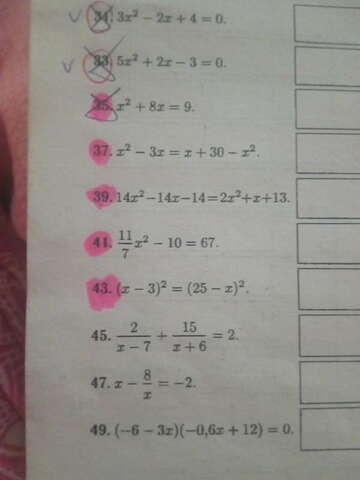 34. 3x² − 2x + 4 = 0.
33. 5x² + 2x − 3 = 0.
35. x² + 8x = 9.
37. x² − 3x = x + 30 − x².
39. 14x²−14x−14=2x²+x+13.
41. 11/7 x² − 10 = 67.
43. (x − 3)² = (25 − x)².
45. 2/(x − 7) + 15/(x + 6) = 2.
47. x − 8/x = −2.
49. (−6 − 3x)(−0,6x + 12) = 0.